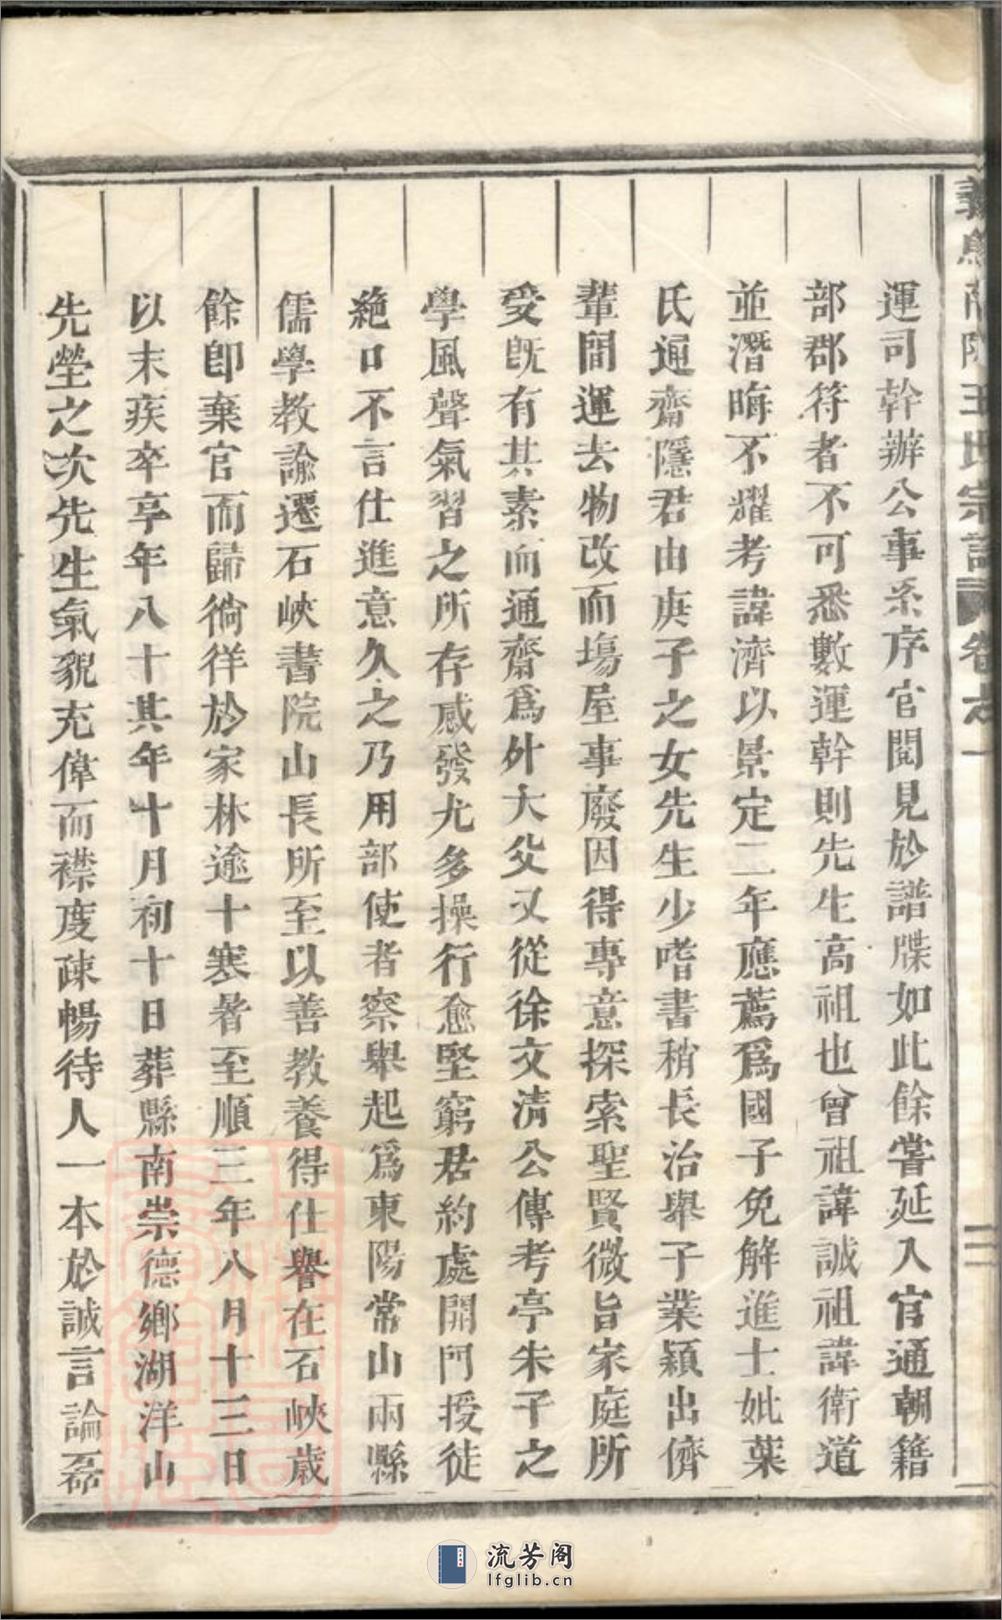 運司幹辦公事系序官閥見於譜牒如此餘嘗延入官通朝籍
部郡符者不可悉數運幹則先生高祖也曾祖諱誠祖諱衛道
並潛晦不耀考諱濟以景定二年應薦爲國子免解進士妣葉
氏通齋隱君由庚子之女先生少嗜書稍長治舉子業穎出儕
輩間運去物改而場屋事廢因得專意探索聖賢微旨家庭所
受旣有其素而通齋爲外大父又從徐文清公傳考亭朱子之
學風聲氣習之所存感發尤多操行愈堅窮居約處開門授徒
絶口不言仕進意久之乃用部使者察舉起爲東陽常山兩縣
儒學教諭遷石峽書院山長所至以善教養得仕譽在石峽歲
餘卽棄官而歸徜徉於家林逾十寒暑至順三年八月十三日
以末疾卒享年八十其年十月初十日葬縣南崇德鄉湖洋山
先塋之次先生氣貌充偉而襟度疎暢待人一本於誠言論磊
流芳阁
lfglib.cn